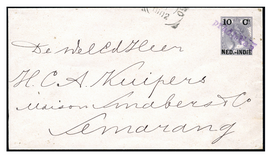 10 Ct
NED.-INDIE
De WelEd Heer
H.C.A. Kuipers
Maison Smabers & Co
Semarang